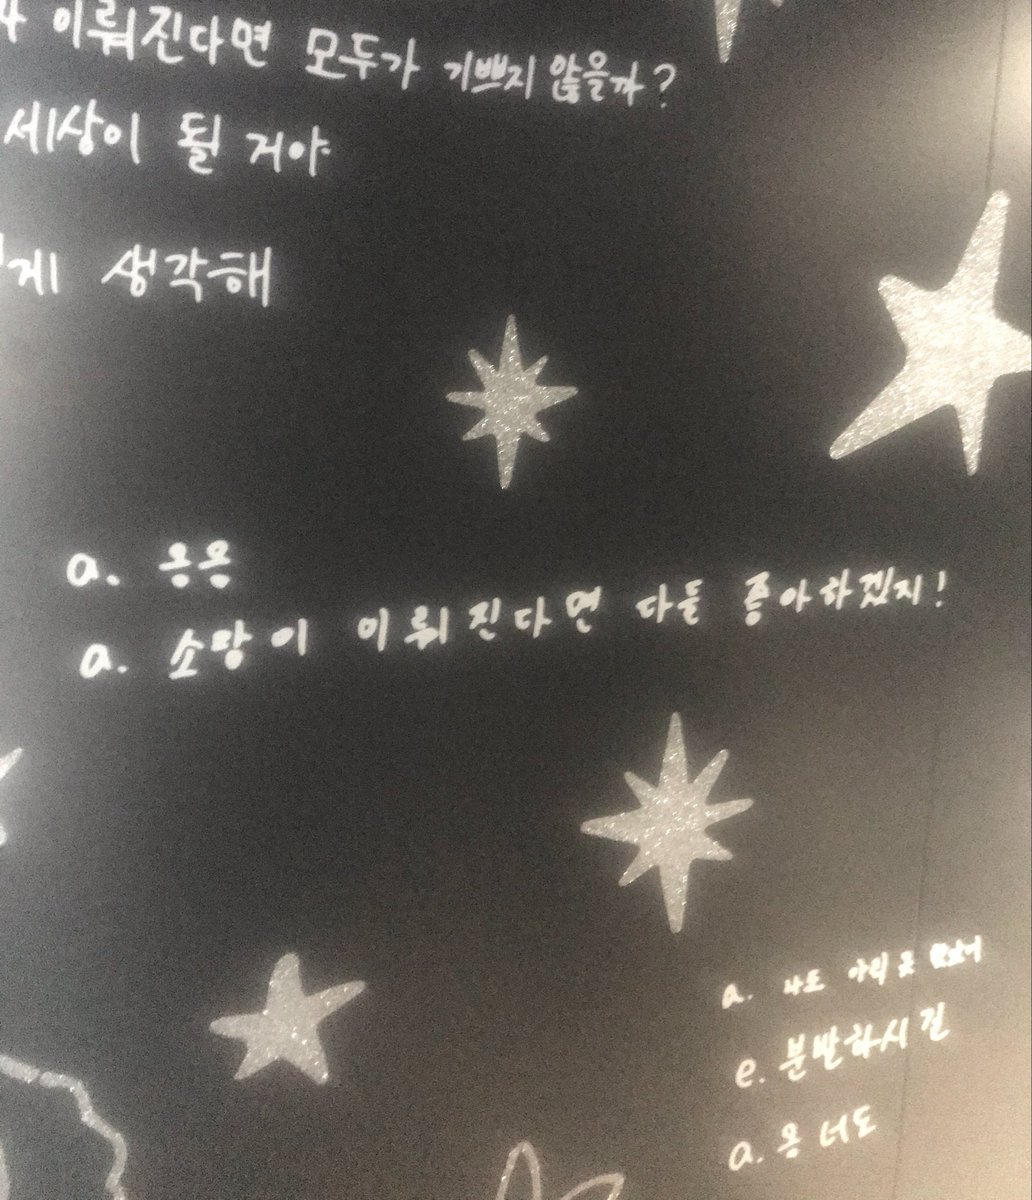 이뤄진다면 모두가 기쁘지 않을까?
세상이 될 거야
생각해
a. 응응
a. 소망이 이뤄진다면 다들 좋아하겠지!
a. 나도 아직 못
e. 분발하시길
a. 응 너도